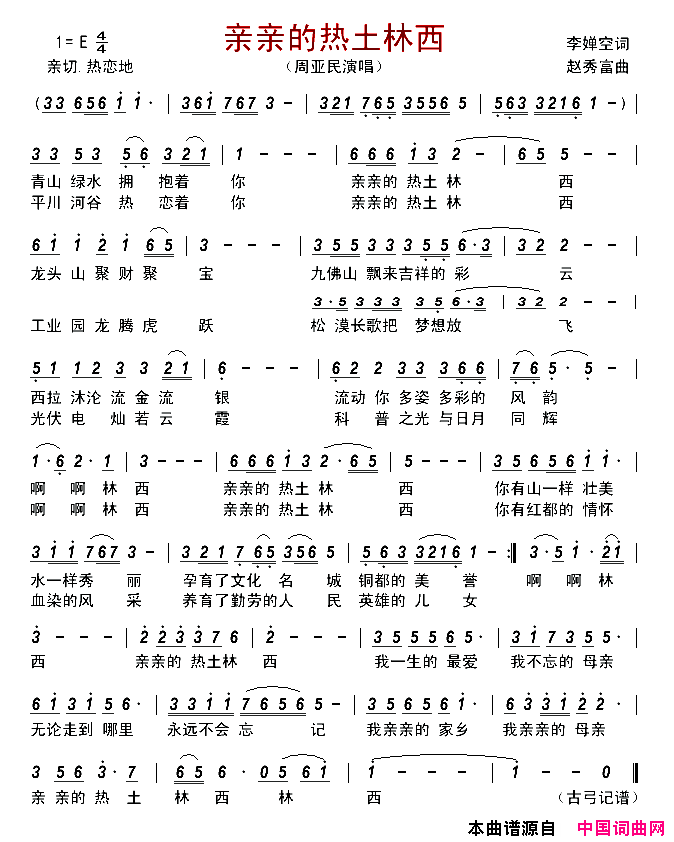 亲亲的热土林西
1= E 4/4
李婵空词
亲切.热恋地
（周亚民演唱）
赵秀富曲
( 3 3 6 5 6 i i · | 3 6 i 7 6 7 3 · | 3 2 1 7 6 5 3 5 5 6 5 | 5 6 3 3 2 1 6 1 - ) |
3 3 5 3 6 · 5 3 2 1 | 1 - - - | 6 6 6 i 3 2 - | 6 5 5 - - |
青山 绿水 拥 抱着 你 亲亲的 热土 林 西
平川 河谷 热 恋着 你 亲亲的 热土 林 西
6 i i 2 i 6 5 | 3 - - - | 3 5 5 3 3 3 5 5 6 · 3 | 3 2 2 - - |
龙头 山 聚 财 聚 宝 九佛山 飘来吉祥的 彩 云
3 5 · 5 3 3 2 2 3 5 6 · 3 | 3 2 2 - - |
工业 园 龙 腾 虎 跃 松 漠长歌把 梦想放 飞
5 1 1 2 3 3 2 1 | 6 - - - | 6 2 2 3 3 3 6 6 | 7 6 5 · 5 - |
西拉 沐沦 流 金 流 银 流动 你 多姿 多彩的 风 韵
光伏 电 灿 若 云 霞 科 普 之光 与日月 同 辉
1 · 6 2 · 1 | 3 - - - | 6 6 6 i 3 2 · 6 5 | 5 - - - | 3 5 6 5 6 i i · |
啊 啊 林 西 亲亲的 热土 林 西 你有山一样 壮美
啊 啊 林 西 亲亲的 热土 林 西 你有红都的 情怀
3 i i 7 6 7 3 - | 3 2 1 7 6 5 3 5 6 5 | 5 6 3 3 2 1 6 1 - :| 3 · 5 i · 2 i |
水一样秀 丽 孕育了文化 名 城 铜都的 美 誉 啊 啊 林
血染的风 采 养育了勤劳的人 民 英雄的 儿 女
3 - - - | 2 2 3 3 2 2 - | 3 4 3 5 6 6 · | 3 3 1 7 6 5 · |
西 亲亲的 热土林 西 我一生的 最爱 我不忘的 母亲
6 i 3 i 5 6 · | 3 3 i i 7 6 5 6 | 3 6 5 6 i 2 · | 6 3 3 i 2 2 · |
无论走到 哪里 永远不会 忘 记 我亲亲的 家乡 我亲亲的 母亲
3 5 6 3 · 7 | 6 5 6 · 0 5 6 i | i - - - | i - - 0 ‖
亲 亲的 热 土 林 西 林 西 （古弓记谱）
本曲谱源自 中国词曲网